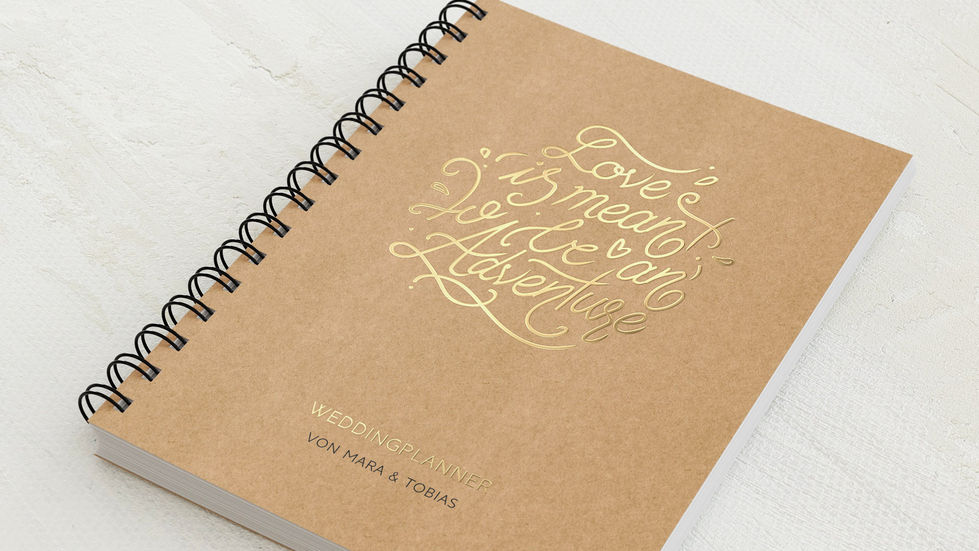 Love
is meant
to be an
Adventure
WEDDINGPLANNER
VON MARA & TOBIAS